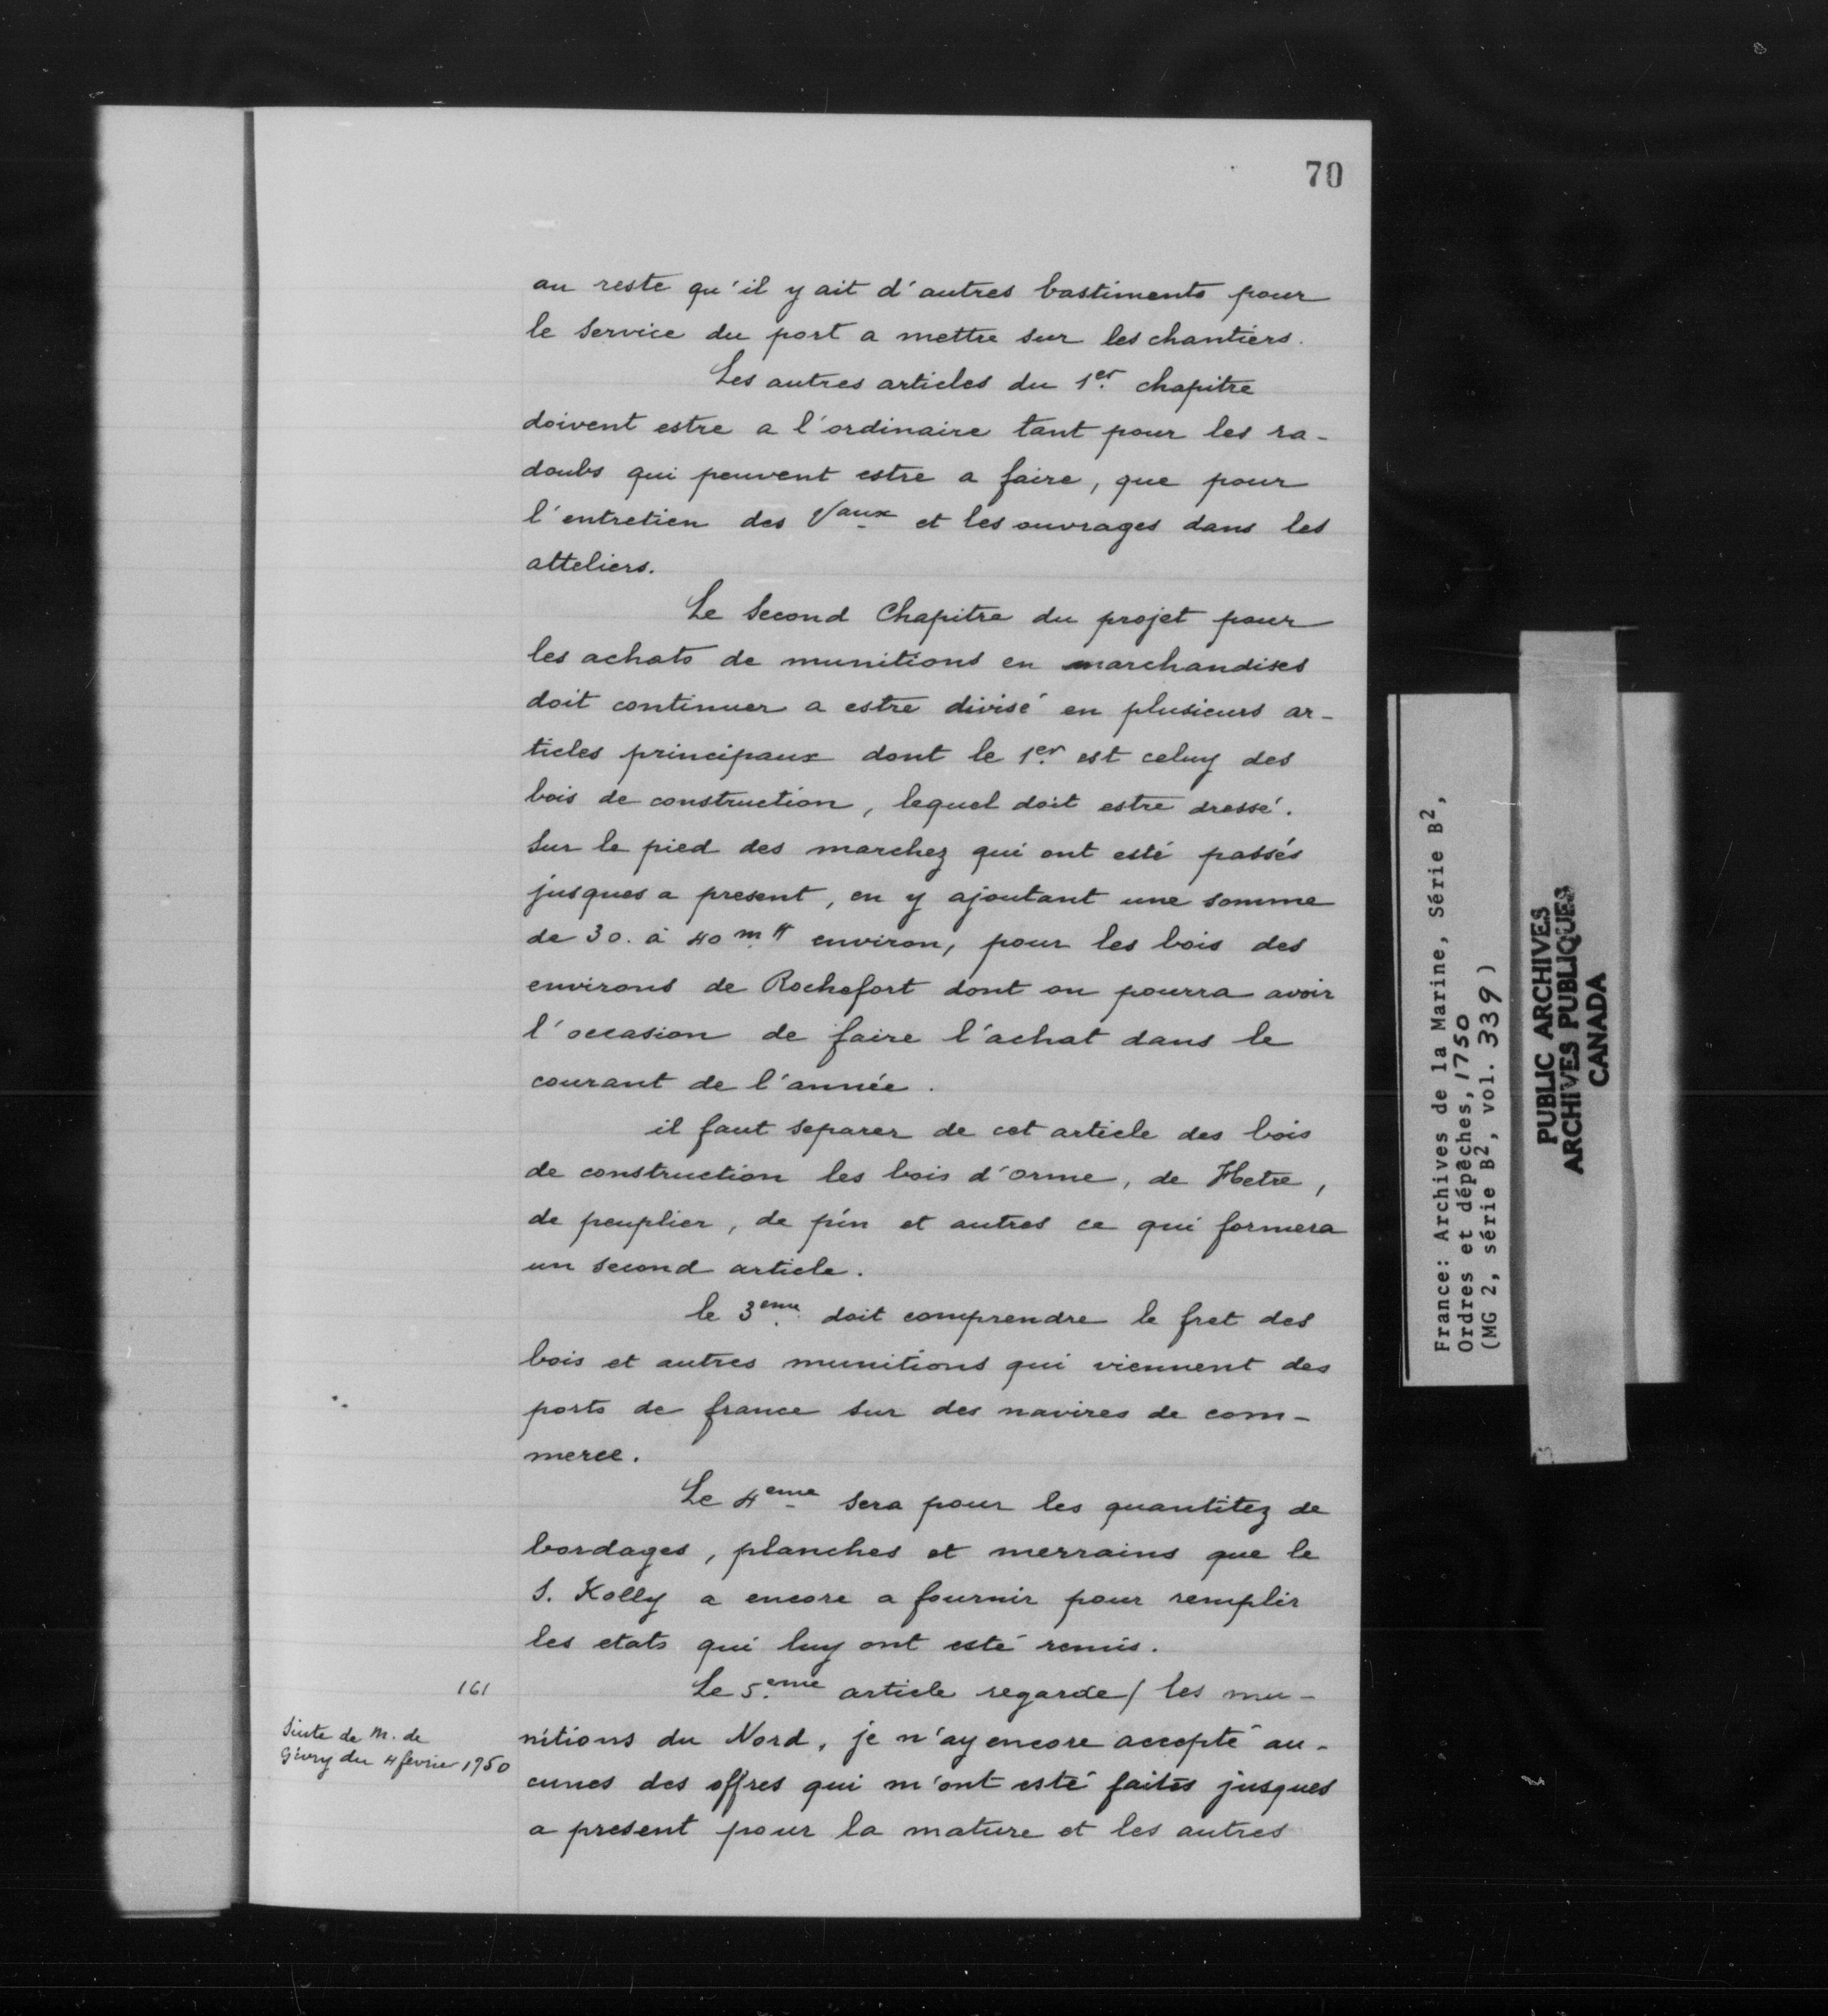 70
au reste qu'il y ait d'autres bastiments pour
le service du port a mettre sur les chantiers.
Les autres articles du 1er. chapitre
doivent estre a l'ordinaire tant pour les ra-
doubs qui peuvent estre a faire, que pour
l'entretien des Vaux et les ouvrages dans les
atteliers.
Le Second Chapitre du projet pour
les achats de munitions en marchandises
doit continuer a estre divisé en plusieurs ar-
ticles principaux dont le 1er. est celuy des
bois de construction, lequel doit estre dressé.
sur le pied des marchez qui ont esté passés
jusques a present, en y ajoutant une somme
de 30. à 40 m ₶ environ, pour les bois des
environs de Rochefort dont on pourra avoir
l'occasion de faire l'achat dans le
courant de l'année.
il faut separer de cet article des bois
de construction les bois d'orme, de Hetre,
de peuplier, de pin et autres ce qui formera
un second article.
le 3eme. doit comprendre le fret des
bois et autres munitions qui viennent des
ports de france sur des navires de com-
merce.
Le 4eme sera pour les quantitez de
bordages, planches et merrains que le
S. Kolly a encore a fournir pour remplir
les etats qui luy ont esté remis.
161
Le 5.eme article regarde/ les mu-
Suite de M. de
Givry du 4 fevrier 1750
nitions du Nord, je n'ay encore accepté au-
cunes des offres qui m'ont esté faites jusques
a present pour la mature et les autres
France: Archives de la Marine, Série B2,
Ordres et dépêches, 1750
(MG 2, série B2, vol. 339)
PUBLIC ARCHIVES
ARCHIVES PUBLIQUES
CANADA